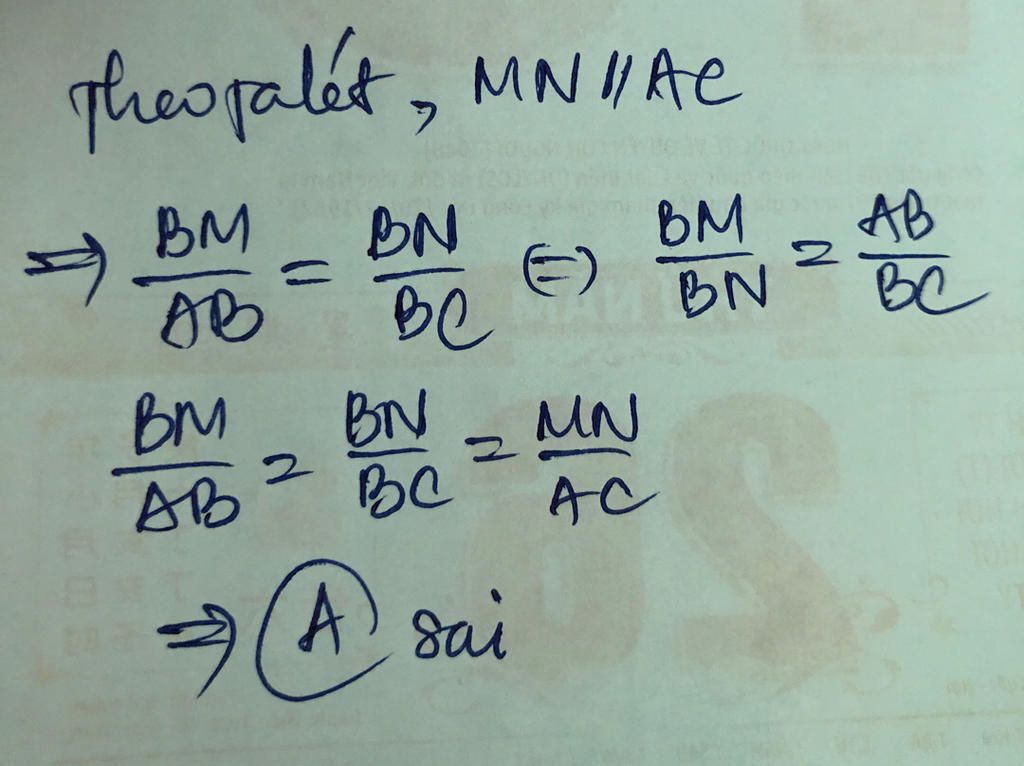 Theo Talét, MN // AC
⇒ BM/AB = BN/BC ⇔ BM/BN = AB/BC
BM/AB = BN/BC = MN/AC
⇒ A sai